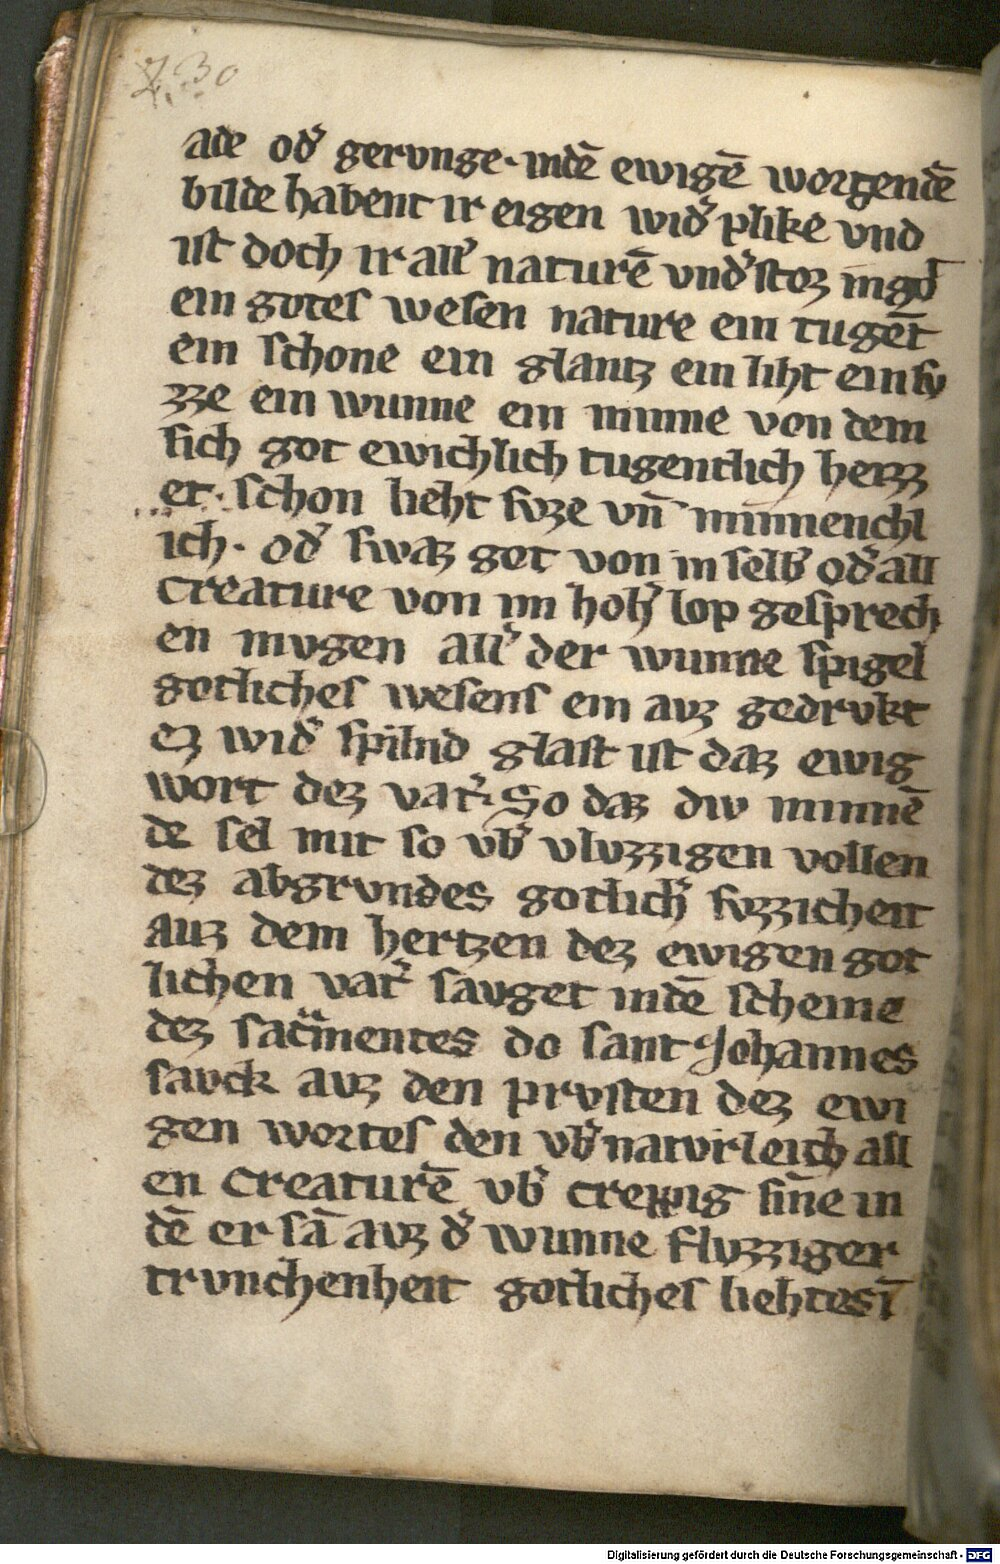 z. 30
ade od̾ gerunge · indē ewigē worgendē
bilde habent ir eigen wid̾ plike vnd
ist doch ir all̾ naturē vnd̾ stoz in got
ein gotes wesen nature ein tugēt
ein schone ein glantz ein liht ein su
zze ein wunne ein minne von dem
sich got ewichlich tugentlich herzz
er · schon lieht svze vn̄ minnenchl
ich · od̾ swaz got von im selb̾ od̾ all
creature von im hoh̾ lop gesprech
en mvgen all̾ der wunne spigel
gotliches wesens ein avz gedrvkt
ez wid̾ spilnd glast ist daz ewig
wort dez vat̾ · So daz div minnē
de sel mit so vb̾ vluzzigen vollen
dez abgrvndes gotlich̾ svzzicheit
auz dem hertzen dez ewigen got
lichen vat̾ sauget indē scheine
dez sac̾mentes do sant Johannes
sauck avz den prvsten dez ewi
gen wortes den vb̾ natvrleich all
en creaturē vb̾ creftig sin̄e in
dē er sā avz d̾ wunne flvzziger
trvnchenheit gotliches liehtes ī
Digitalisierung gefördert durch die Deutsche Forschungsgemeinschaft - DFG